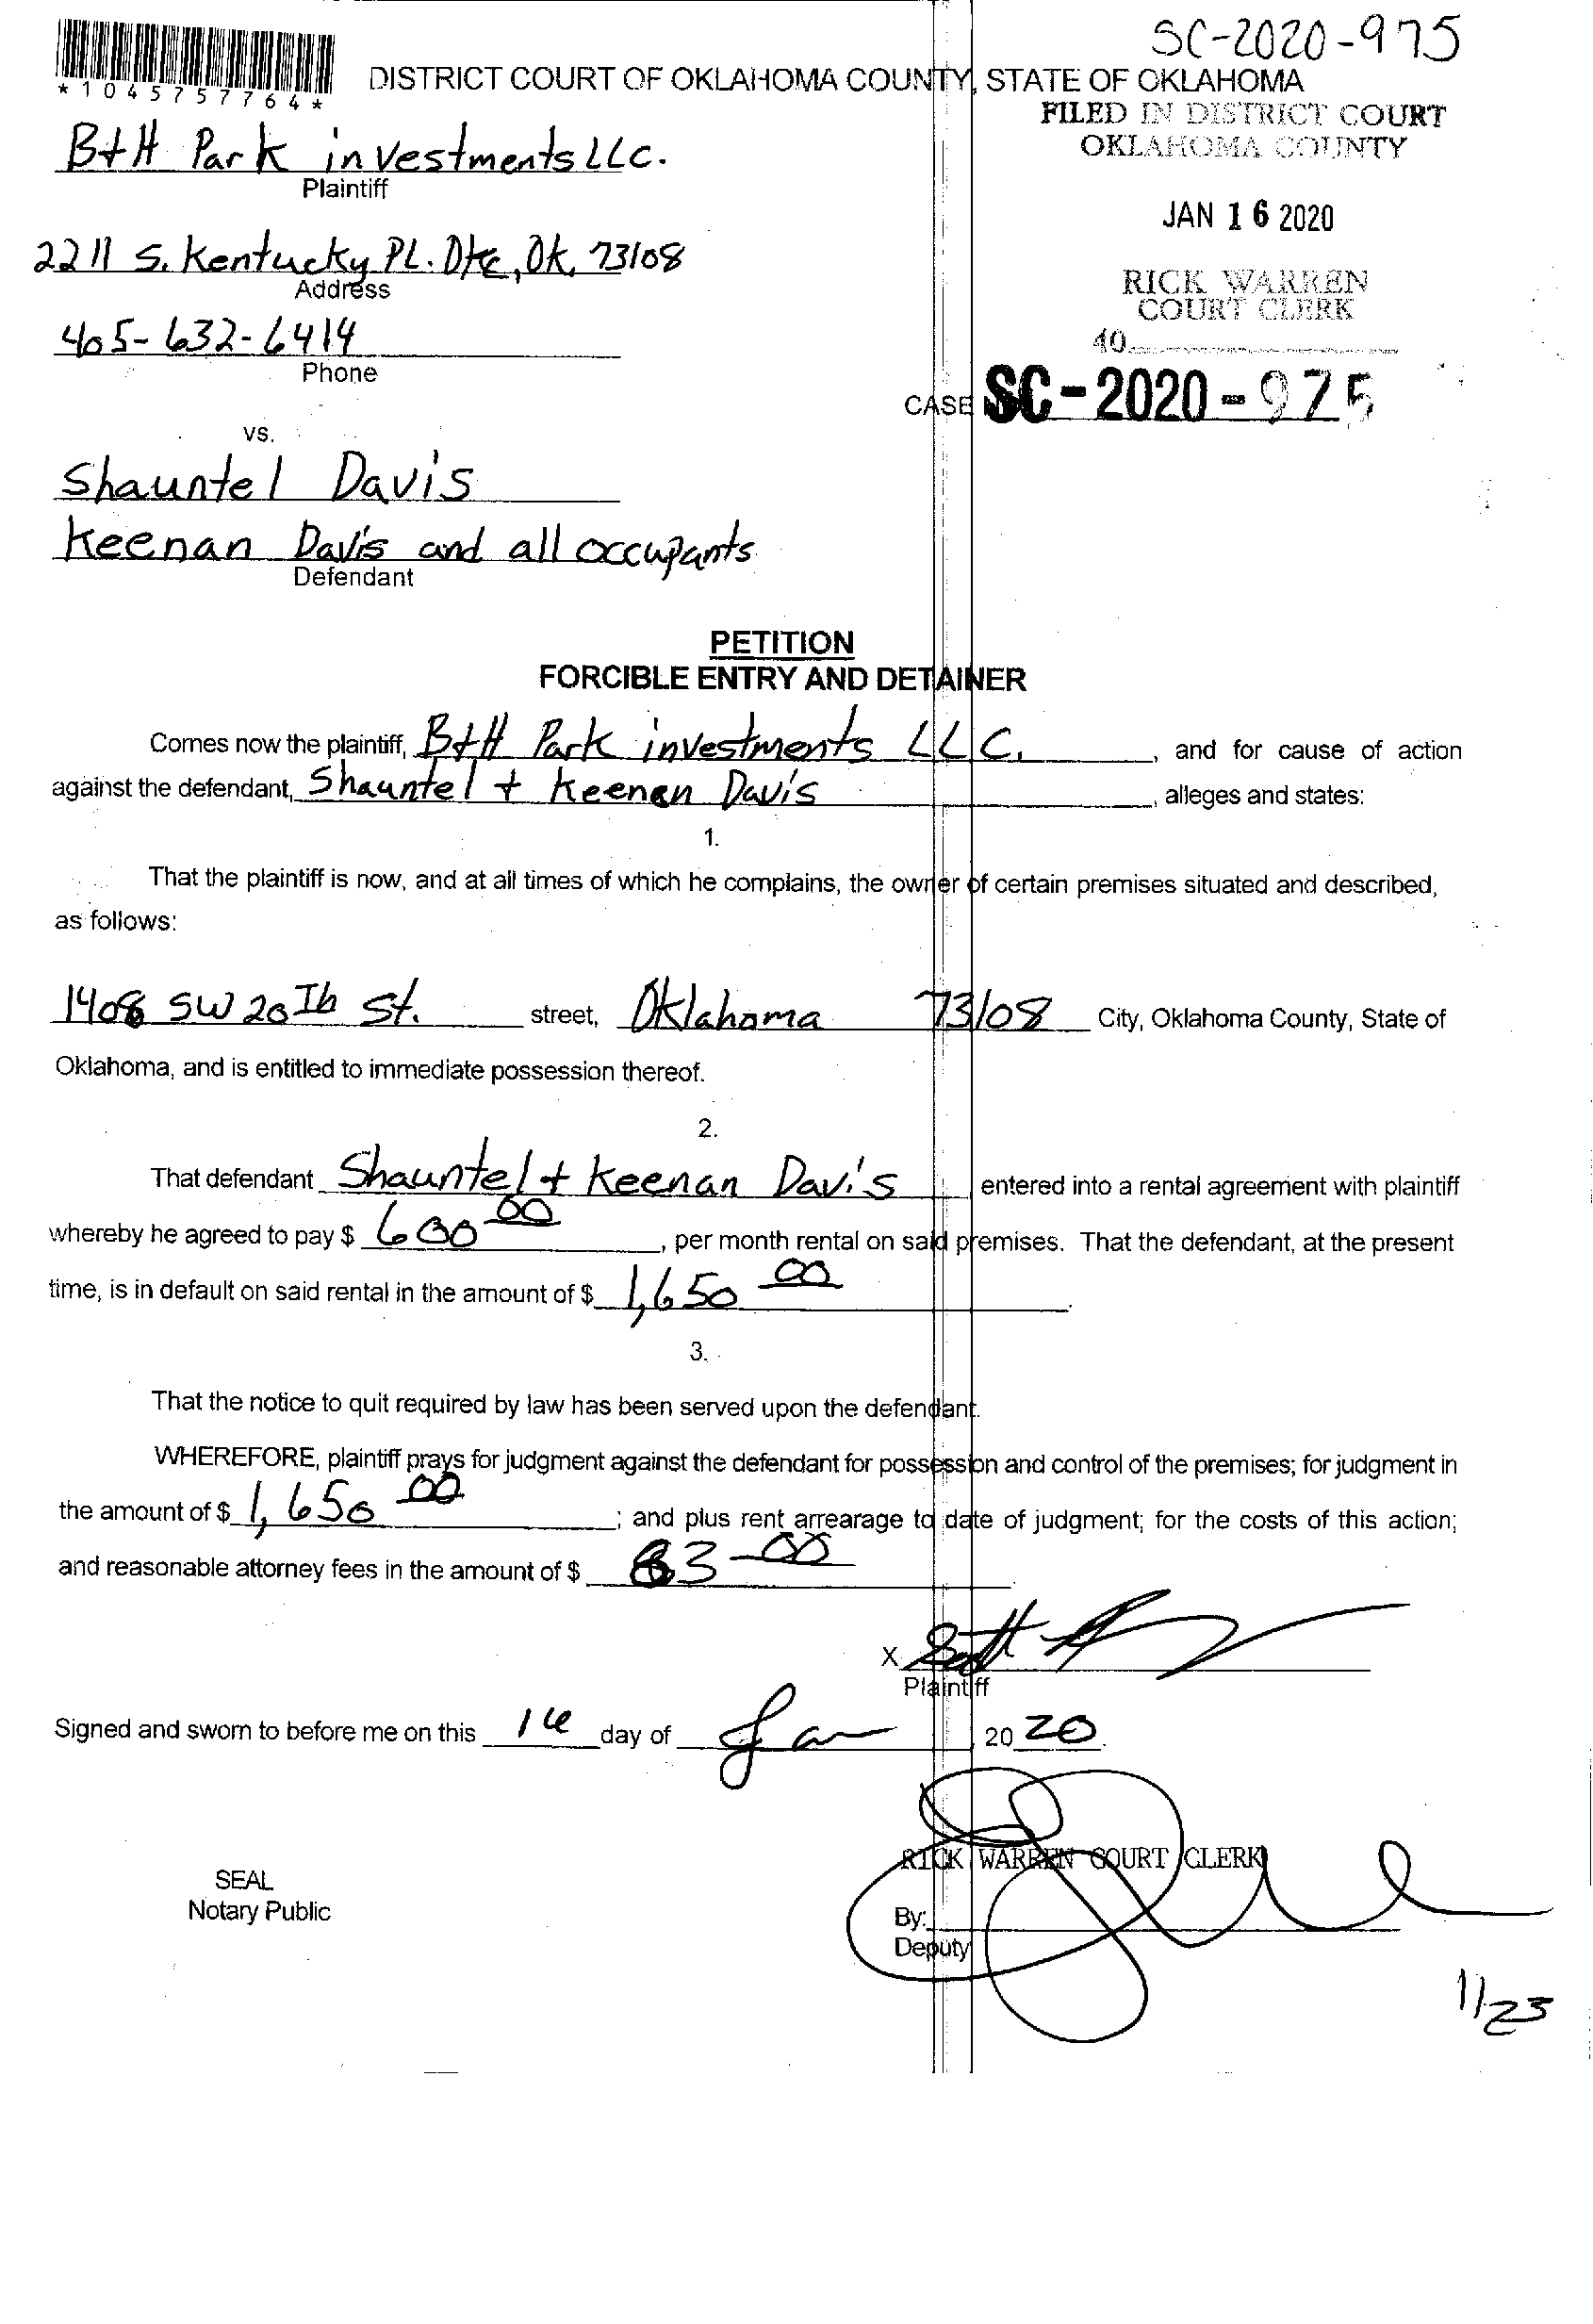 SC-2020-975
*1045757764*
DISTRICT COURT OF OKLAHOMA COUNTY, STATE OF OKLAHOMA
FILED IN DISTRICT COURT
OKLAHOMA COUNTY
B+H Park investments LLC.
Plaintiff
JAN 16 2020
2211 S. Kentucky PL. Okc, Ok, 73108
Address
RICK WARREN
COURT CLERK
405-632-6414
Phone
40
CASE SC-2020-975
vs.
Shauntel Davis
Keenan Davis and all occupants
Defendant
PETITION
FORCIBLE ENTRY AND DETAINER
Comes now the plaintiff, B+H Park investments LLC., and for cause of action
against the defendant, Shauntel + Keenan Davis, alleges and states:
1.
That the plaintiff is now, and at all times of which he complains, the owner of certain premises situated and described,
as follows:
1408 SW 20Th St. street, Oklahoma 73108 City, Oklahoma County, State of
Oklahoma, and is entitled to immediate possession thereof.
2.
That defendant Shauntel + Keenan Davis entered into a rental agreement with plaintiff
whereby he agreed to pay $ 600 00, per month rental on said premises. That the defendant, at the present
time, is in default on said rental in the amount of $ 1,650 00.
3.
That the notice to quit required by law has been served upon the defendant.
WHEREFORE, plaintiff prays for judgment against the defendant for possession and control of the premises; for judgment in
the amount of $ 1,650 00; and plus rent arrearage to date of judgment; for the costs of this action;
and reasonable attorney fees in the amount of $ 83-00
X Scott
Plaintiff
Signed and sworn to before me on this 16 day of Jan, 2020.
RICK WARREN COURT CLERK
SEAL
Notary Public
By:
Deputy
1/23